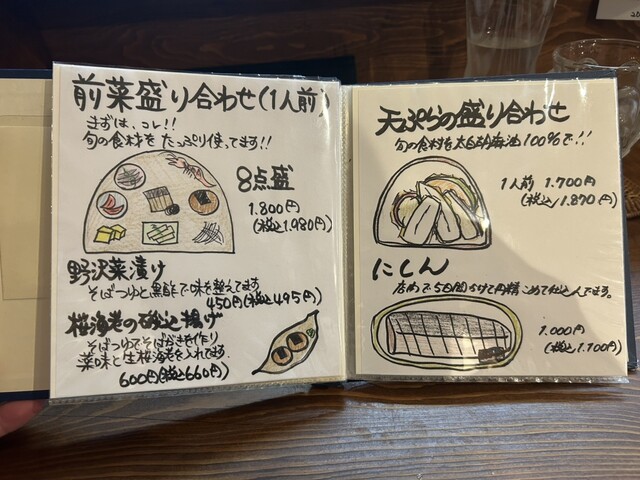 前菜盛り合わせ(1人前)
まずは、コレ!!
旬の食材をたっぷり使ってます!!
8点盛
1.800円
(税込1.980円)
野沢菜漬け
そばつゆと黒酢で味を整えてます
450円(税込495円)
桜海老の磯辺揚げ
そばつゆでそばがきを作り
薬味と生桜海老を入れてます.
600円(税込660円)
天ぷらの盛り合わせ
旬の食材を太白胡麻油100%で!!
1人前 1.700円
(税込1.870円)
にしん
店めで5日間かけて丹精こめて仕込んでます。
1.000円
(税込1.100円)